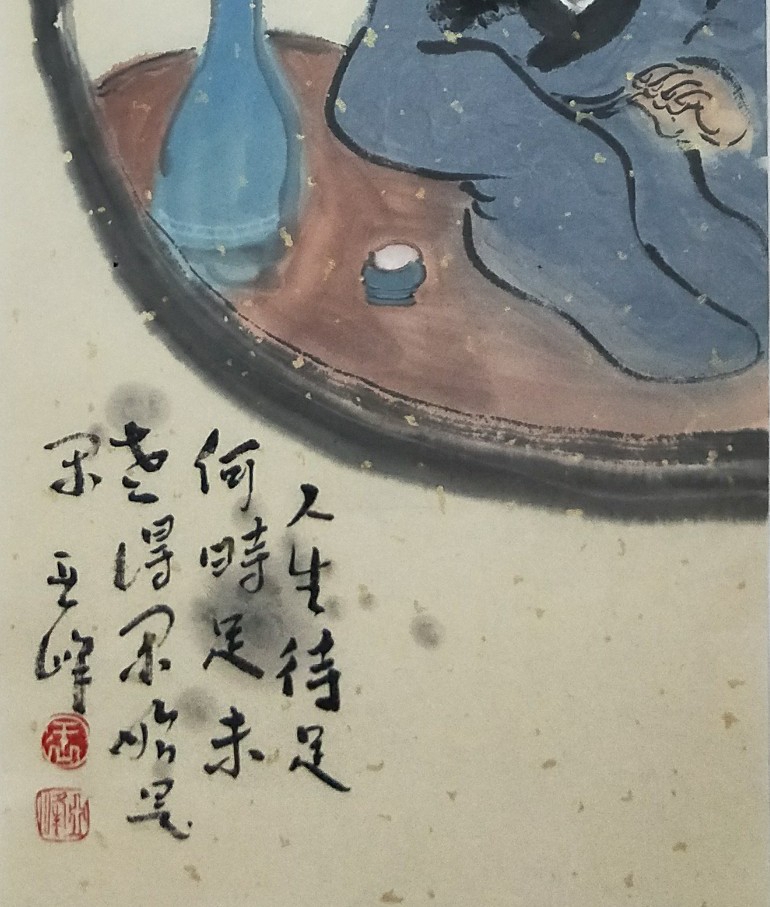 人生待足
何時足未
老得閑始是
閑 亚峰